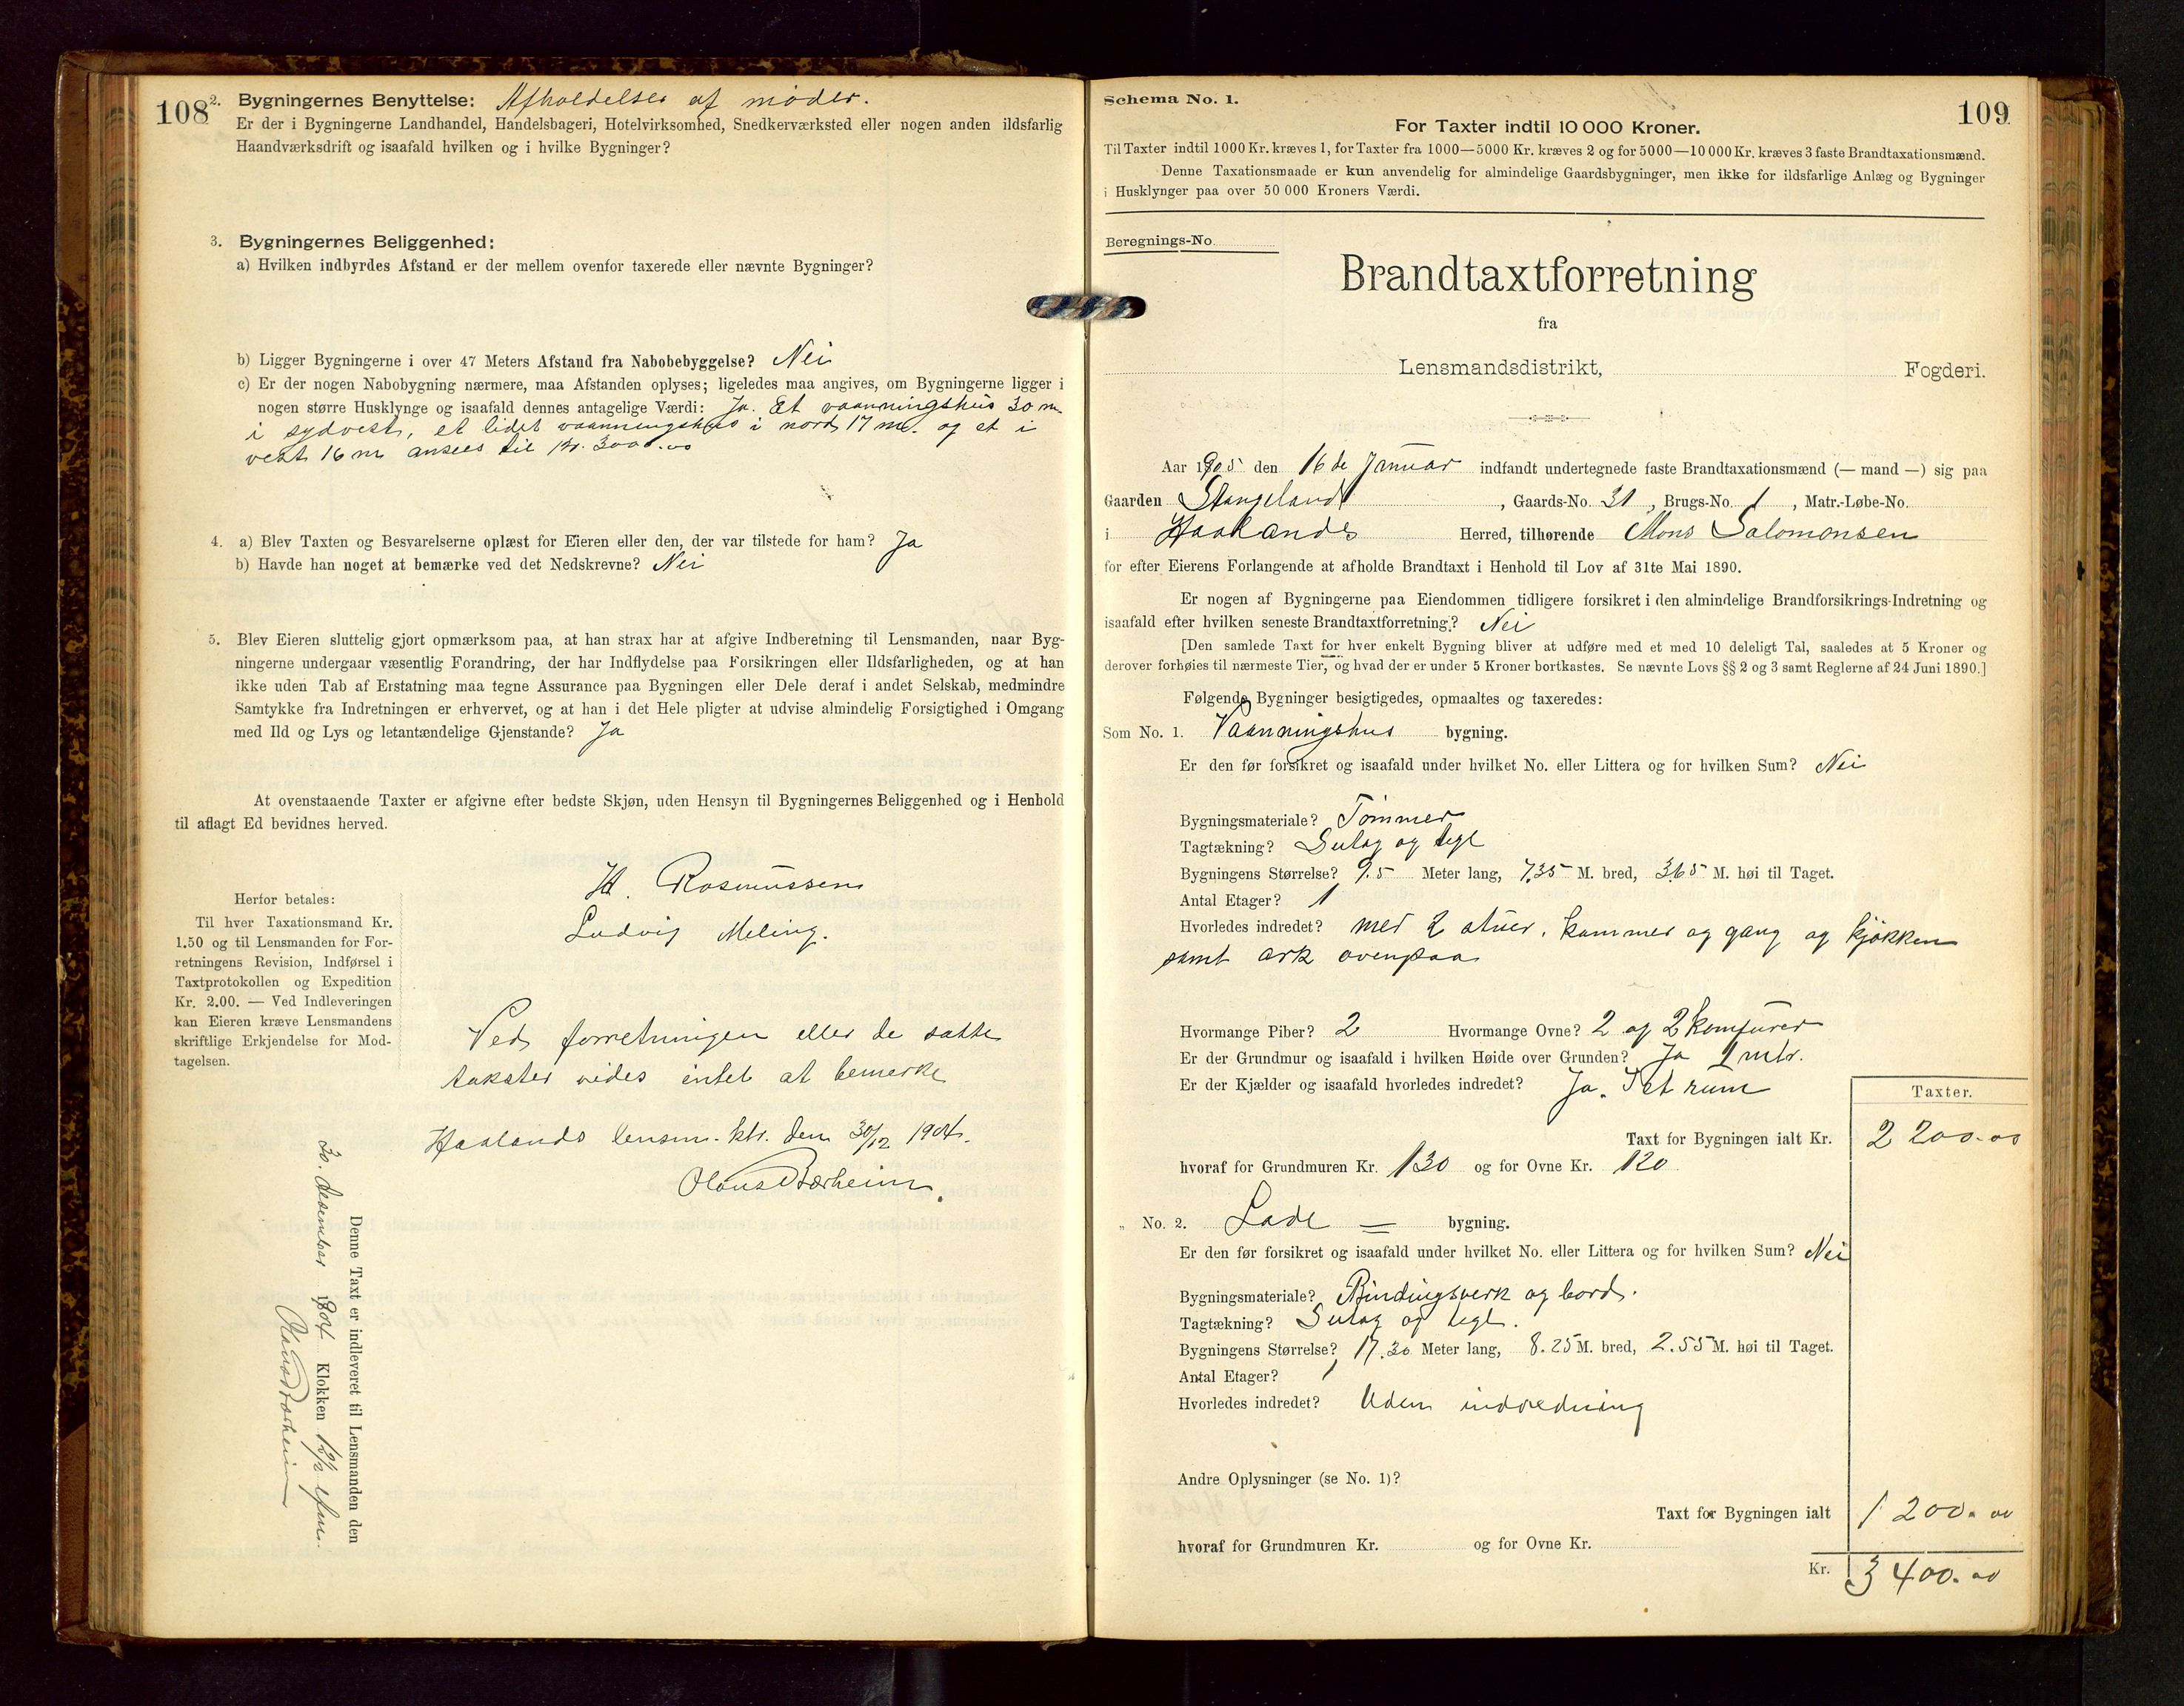 108
2. Bygningernes Benyttelse: Afholdelser af møder.
Er der i Bygningerne Landhandel, Handelsbageri, Hotelvirksomhed, Snedkerværksted eller nogen anden ildsfarlig
Haandværksdrift og isaafald hvilken og i hvilke Bygninger?
3. Bygningernes Beliggenhed:
a) Hvilken indbyrdes Afstand er der mellem ovenfor taxerede eller nævnte Bygninger?
b) Ligger Bygningerne i over 47 Meters Afstand fra Nabobebyggelse? Nei
c) Er der nogen Nabobygning nærmere, maa Afstanden oplyses; ligeledes maa angives, om Bygningerne ligger i
nogen større Husklynge og isaafald dennes antagelige Værdi: Ja. Et vaanningshus 30 m
i sydvest, et lidet vaanningshus i nord 17 m. og et i
vest 16 m ansees til kr. 3000.00
4. a) Blev Taxten og Besvarelserne oplæst for Eieren eller den, der var tilstede for ham? Ja
b) Havde han noget at bemærke ved det Nedskrevne? Nei
5. Blev Eieren sluttelig gjort opmærksom paa, at han strax har at afgive Indberetning til Lensmanden, naar Byg-
ningerne undergaar væsentlig Forandring, der har Indflydelse paa Forsikringen eller Ildsfarligheden, og at han
ikke uden Tab af Erstatning maa tegne Assurance paa Bygningen eller Dele deraf i andet Selskab, medmindre
Samtykke fra Indretningen er erhvervet, og at han i det Hele pligter at udvise almindelig Forsigtighed i Omgang
med Ild og Lys og letantændelige Gjenstande? Ja
At ovenstaaende Taxter er afgivne efter bedste Skjøn, uden Hensyn til Bygningernes Beliggenhed og i Henhold
til aflagt Ed bevidnes herved.
H. Rasmussen
Ludvig Meling.
Herfor betales:
Til hver Taxationsmand Kr.
1.50 og til Lensmanden for For-
retningens Revision, Indførsel i
Taxtprotokollen og Expedition
Kr. 2.00. — Ved Indleveringen
kan Eieren kræve Lensmandens
skriftlige Erkjendelse for Mod-
tagelsen.
Ved forretningen eller de satte
takster vides intet at bemerke
Haalands lensm. ktr. den 30/12 1904.
Olaus Bærheim.
Denne Taxt er indleveret til Lensmanden den
30. desember 1904 Klokken 12½ efm.
Olaus Bærheim
109
Schema No. 1.
For Taxter indtil 10 000 Kroner.
Til Taxter indtil 1000 Kr. kræves 1, for Taxter fra 1000—5000 Kr. kræves 2 og for 5000—10 000 Kr. kræves 3 faste Brandtaxationsmænd.
Denne Taxationsmaade er kun anvendelig for almindelige Gaardsbygninger, men ikke for ildsfarlige Anlæg og Bygninger
i Husklynger paa over 50 000 Kroners Værdi.
Beregnings-No.
Brandtaxtforretning
fra
Lensmandsdistrikt, Fogderi.
Aar 1905 den 16de Januar indfandt undertegnede faste Brandtaxationsmænd (— mand —) sig paa
Gaarden Stangeland, Gaards-No. 31, Brugs-No. 1, Matr.-Løbe-No.
i Haalands Herred, tilhørende Mons Salomonsen
for efter Eierens Forlangende at afholde Brandtaxt i Henhold til Lov af 31te Mai 1890.
Er nogen af Bygningerne paa Eiendommen tidligere forsikret i den almindelige Brandforsikrings-Indretning og
isaafald efter hvilken seneste Brandtaxtforretning? Nei
[Den samlede Taxt for hver enkelt Bygning bliver at udføre med et med 10 deleligt Tal, saaledes at 5 Kroner og
derover forhøies til nærmeste Tier, og hvad der er under 5 Kroner bortkastes. Se nævnte Lovs §§ 2 og 3 samt Reglerne af 24 Juni 1890.]
Følgende Bygninger besigtigedes, opmaaltes og taxeredes:
Som No. 1. Vaanningshus bygning.
Er den før forsikret og isaafald under hvilket No. eller Littera og for hvilken Sum? Nei
Bygningsmateriale? Tømmer
Tagtækning? Sutag og tegl
Bygningens Størrelse? 9.5 Meter lang, 7.35 M. bred, 3.65 M. høi til Taget.
Antal Etager? 1
Hvorledes indredet? med 2 stuer, kammer og gang og kjøkken
samt ark ovenpaa
Hvormange Piber? 2 Hvormange Ovne? 2 og 2 komfurer
Er der Grundmur og isaafald i hvilken Høide over Grunden? Ja 1 mtr.
Er der Kjælder og isaafald hvorledes indredet? Ja. I et rum
Taxter.
Taxt for Bygningen ialt Kr. 2 200.00
hvoraf for Grundmuren Kr. 130 og for Ovne Kr. 120
" No. 2. Lade — bygning.
Er den før forsikret og isaafald under hvilket No. eller Littera og for hvilken Sum? Nei
Bygningsmateriale? Bindingsverk og bord.
Tagtækning? Sutag og tegl.
Bygningens Størrelse? 17.30 Meter lang, 8.25 M. bred, 2.55 M. høi til Taget.
Antal Etager? 1
Hvorledes indredet? Uden indredning
Andre Oplysninger (se No. 1)?
Taxt for Bygningen ialt 1 200.00
hvoraf for Grundmuren Kr. og for Ovne Kr.
Kr. 3 400.00